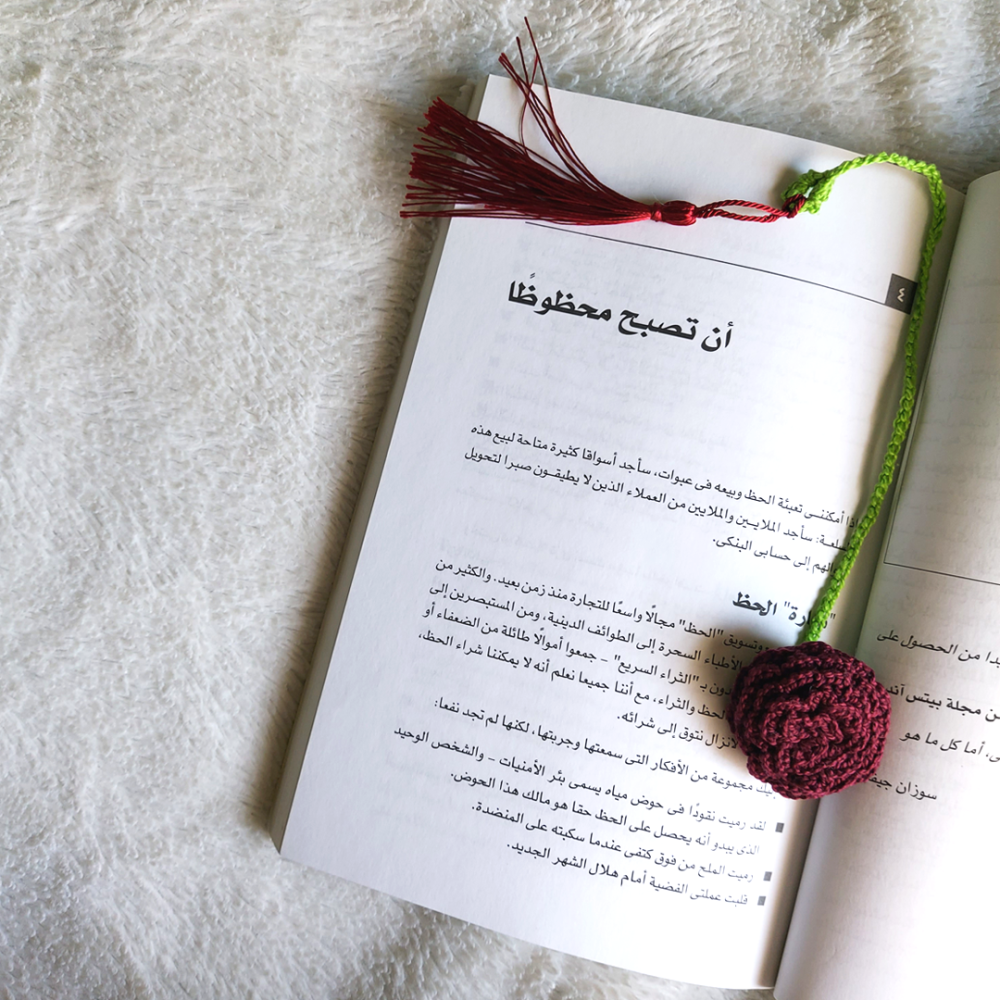 ٤
أن تصبح محظوظًا
إذا أمكننى تعبئة الحظ وبيعه فى عبوات، سأجد أسواقا كثيرة متاحة لبيع هذه
سأجد الملايين والملايين من العملاء الذين لا يطيقون صبرا لتحويل
إلى حسابى البنكى.
الحظ"
وتسويق "الحظ" مجالًا واسعًا للتجارة منذ زمن بعيد. والكثير من
والأطباء السحرة إلى الطوائف الدينية، ومن المستبصرين إلى
بـ "الثراء السريع" – جمعوا أموالًا طائلة من الضعفاء أو
الحظ والثراء، مع أننا جميعا نعلم أنه لا يمكننا شراء الحظ،
لانزال نتوق إلى شرائه.
مجموعة من الأفكار التى سمعتها وجربتها، لكنها لم تجد نفعا:
■ لقد رميت نقودًا فى حوض مياه يسمى بئر الأمنيات – والشخص الوحيد
الذى يبدو أنه يحصل على الحظ حقا هو مالك هذا الحوض.
■ رميت الملح من فوق كتفى عندما سكبته على المنضدة.
■ قلبت عملتى الفضية أمام هلال الشهر الجديد.
من الحصول على
مجلة بيتس
أما كل ما هو
سوزان